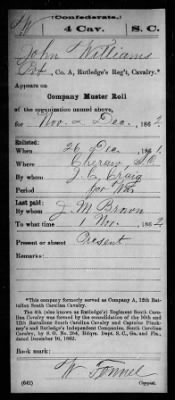 W
(Confederate.)
4 Cav. S.C.
John Williams
Pvt., Co. A, Rutledge's Reg't, Cavalry.*
Appears on
Company Muster Roll
of the organization named above,
for Nov. & Dec., 1862.
Enlisted:
When 26 Dec, 1861.
Where Cheraw, S.C.
By whom J. C. Craig
Period for War
Last paid:
By whom J. M. Brown
To what time 1 Nov., 1862
Present or absent Present
Remarks:
*This company formerly served as Company A, 12th Battalion South Carolina Cavalry.
The 4th (also known as Rutledge's) Regiment South Carolina Cavalry was formed by the consolidation of the 10th and
12th Battalions South Carolina Cavalry and Captains Pinckney's and Rutledge's Independent Companies, South Carolina
Cavalry, by S. O. No. 254, Hdqrs. Dept. S.C., Ga. and Fla.,
dated December 16, 1862.
Book mark:
(642) Copyist.